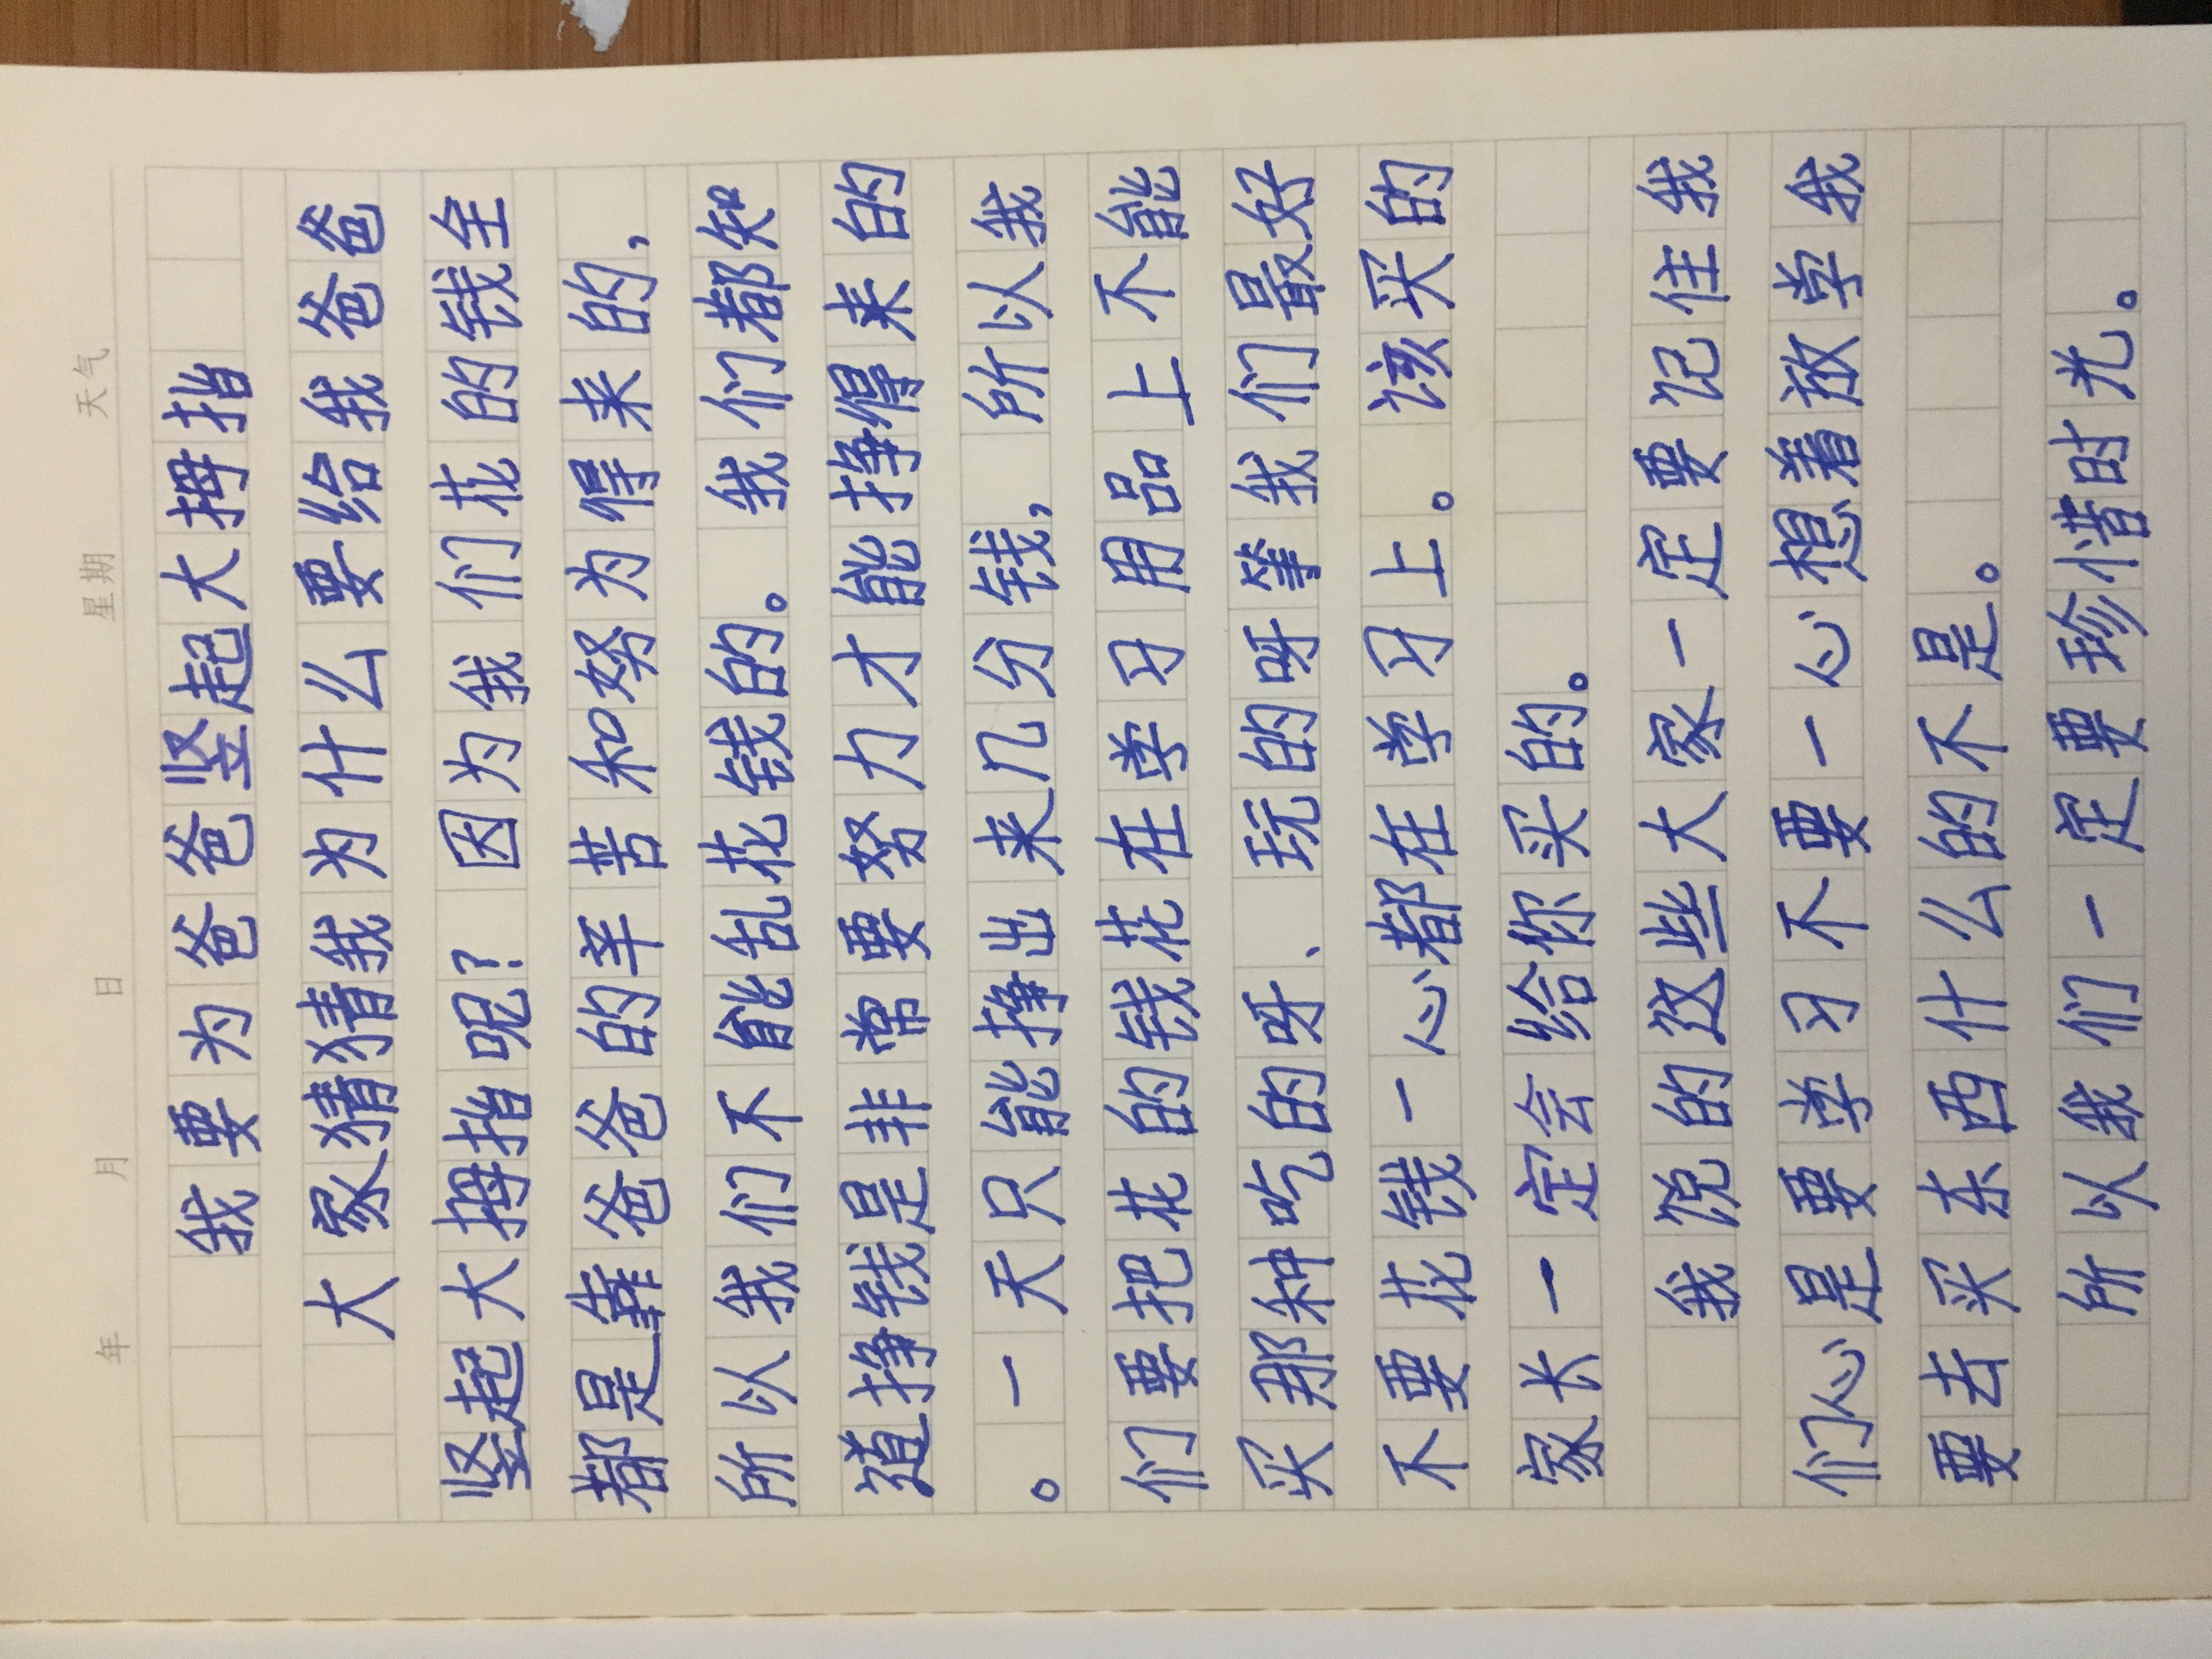 年 月 日 星期 天气
我要为爸爸竖起大拇指
大家猜猜我为什么要给我爸爸
竖起大拇指呢?因为我们花的钱全
都是靠爸爸的辛苦和努为得来的,
所以我们不能乱花钱的。我们都知
道挣钱是非常要努力才能挣得来的
。一天只能挣出来几分钱,所以我
们要把花的钱花在学习用品上不能
买那种吃的呀、玩的呀等我们最好
不要花钱一心都在学习上。该买的
家长一定会给你买的。
我说的这些大家一定要记住我
们心是要学习不要一心想着放学我
要去买东西什么的不是。
所以我们一定要珍惜时光。